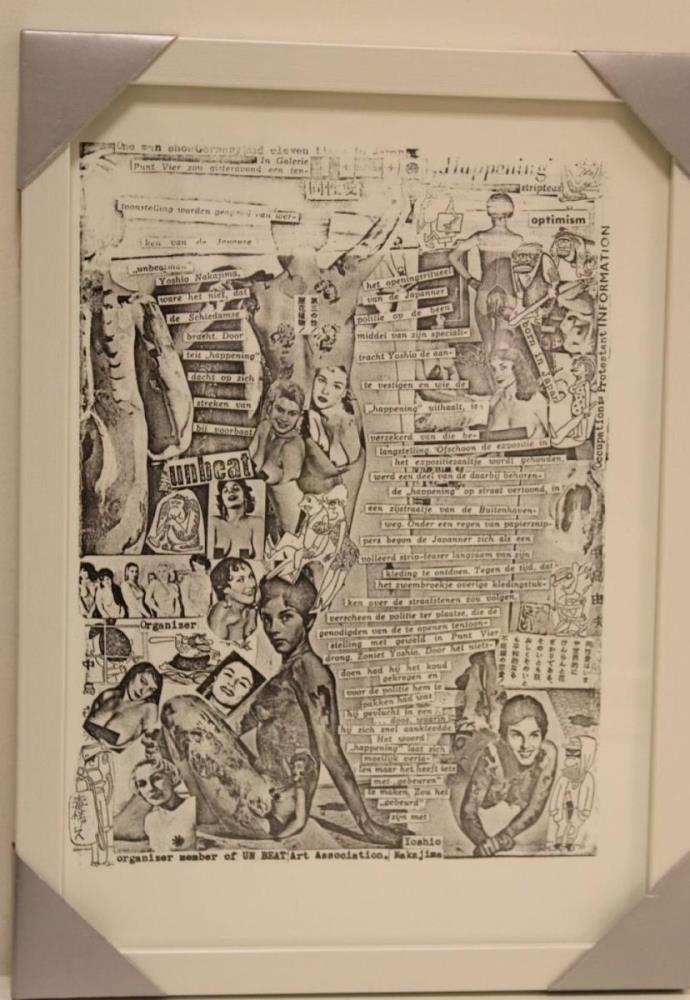 One man show Germany and eleven
In Galerie
Punt Vier zou gisteravond een ten-
同性愛
Happening
striptease
optimism
toonstelling worden geopend van wer-
ken van de Japanse
„unbeatman"
Yoshio Nakajima,
ware het niet, dat
de Schiedamse
bracht. Door
teit „happening"
dacht op zich
streken van
bij voorbaat
第三の性
het openingsritueel
van de Japanner
politie op de been
middel van zijn speciali-
tracht Yoshio de aan-
te vestigen en wie de
„happening" uithaalt, is
verzekerd van die be-
langstelling. Ofschoon de expositie in
het expositiezaaltje wordt gehouden,
werd een deel van de daarbij behoren-
de „happening" op straat vertoond, in
een zijstraatje van de Buitenhaven-
weg. Onder een regen van papiersnip-
pers begon de Javanner zich als een
volleerd strip-teaser langzaam van zijn
kleding te ontdoen. Tegen de tijd, dat
het zwembroekje overige kledingstuk-
ken over de straatstenen zou volgen,
verscheen de politie ter plaatse, die de
genodigden van de te openen tentoon-
stelling met geweld in Punt Vier
drong. Zoniet Yoshio. Door het niets-
doen had hij het koud
gekregen en
voor de politie hem te
pakken had was
hij gevlucht in een
door, waarin
hij zich snel aankleedde
Het woord
„happening" laat zich
moeilijk verta-
len maar het heeft iets
met „gebeuren"
te maken. Zou het
„gebeurd"
zijn met
Yoshio
born in Japan
Occupations: Protestant INFORMATION
unbeat
Organizer
organizer member of UN BEAT Art Association, Nakajima